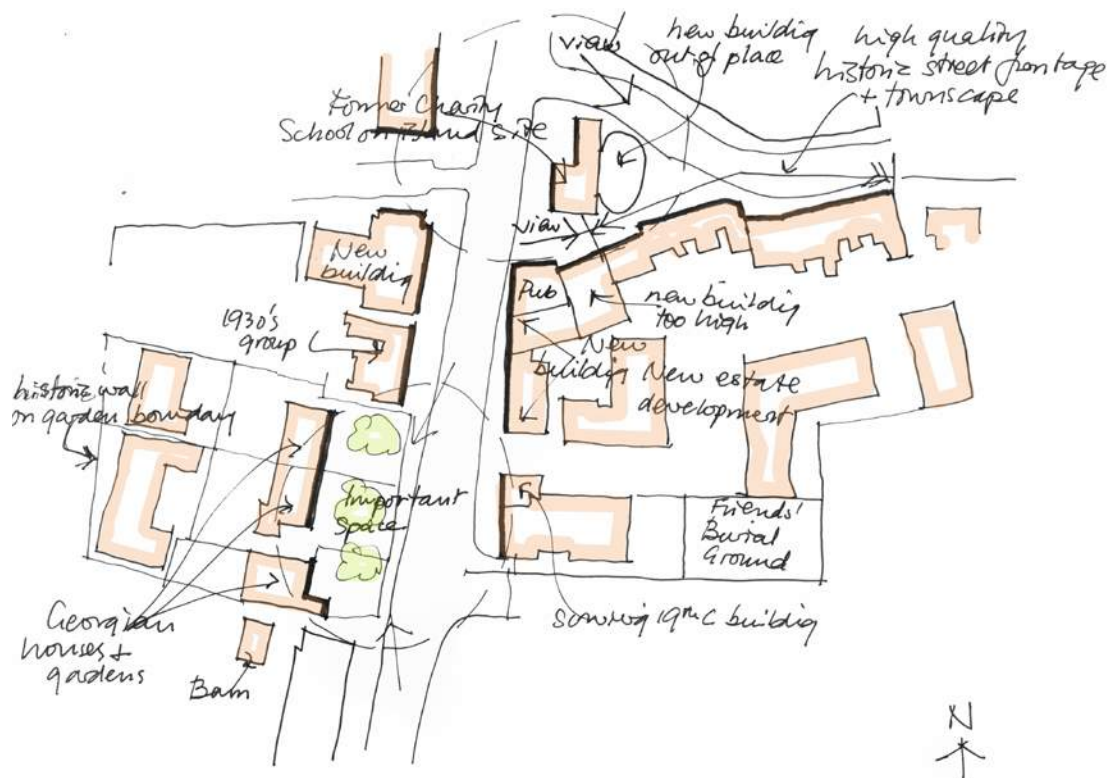 view
new building
out of place
high quality
historic street frontage
+ townscape
Former Charity
School on island site
view
New
building
Pub
new building
too high
1930's
group
New
building
New estate
development
historic wall
on garden boundary
Important
Space
Friends'
Burial
Ground
Georgian
houses +
gardens
Barn
surviving 19th C building
N